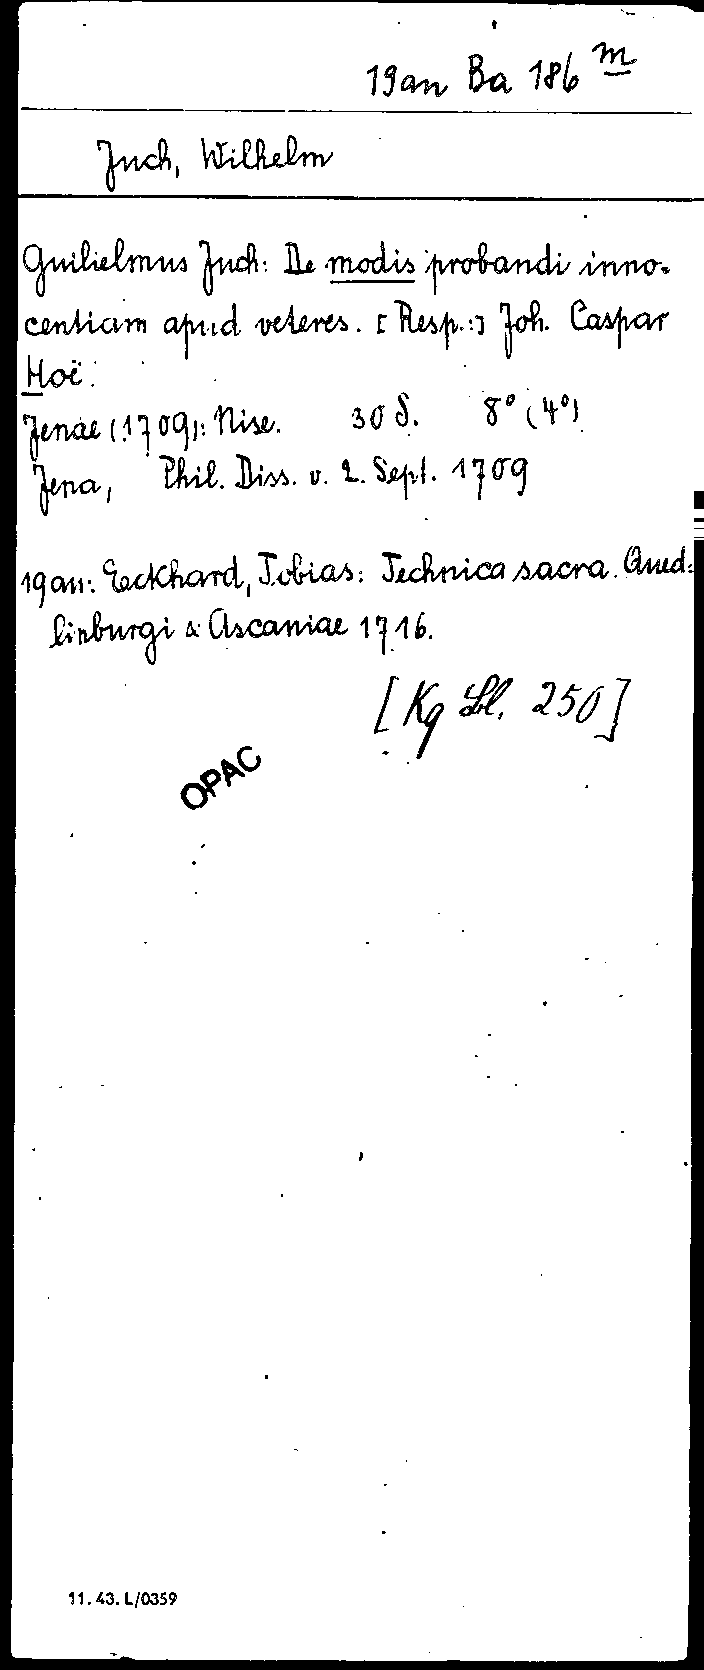 19 an Ba 186 m
Juch, Wilhelm
Guilielmus Juch: De modis probandi inno-
centiam apud veteres. [Resp.:] Joh. Caspar
Hoë.
Jenae (1709): Nise. 30 S. 8° (4°)
Jena, Phil. Diss. v. 2. Sept. 1709
19 an: Eckhard, Tobias: Technica sacra. Qued-
linburgi & Ascaniae 1716.
[Kg Bl. 250]
OPAC
11. 43. L/0359